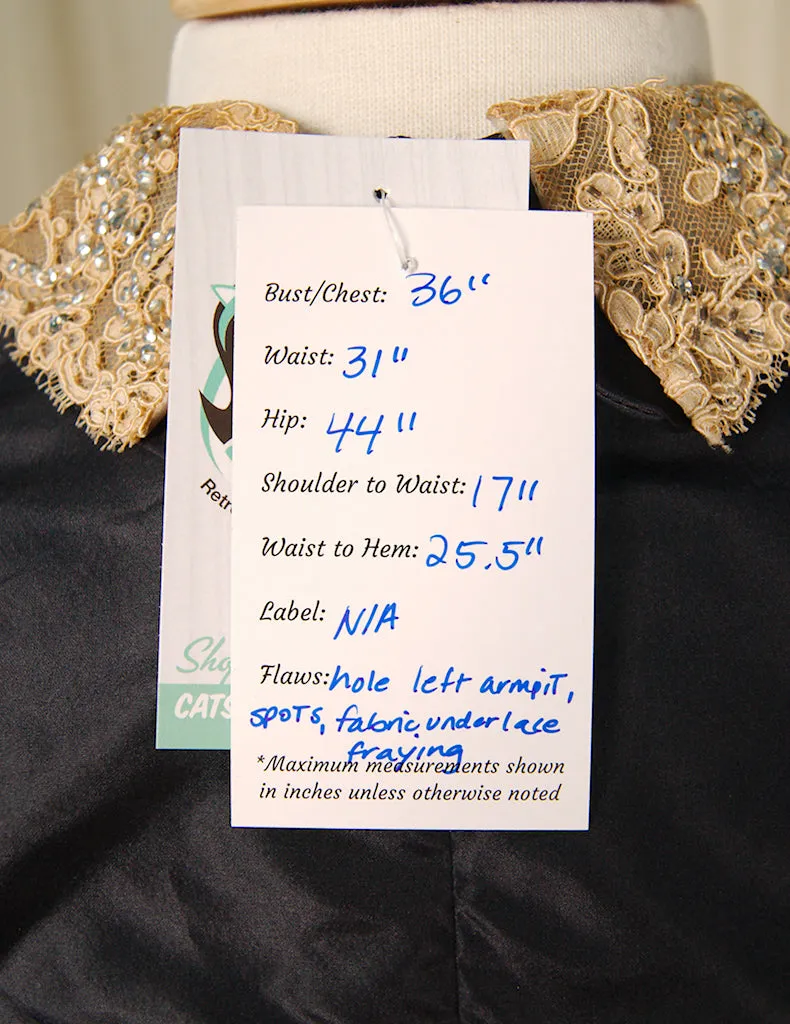 Bust/Chest: 36"
Waist: 31"
Hip: 44"
Shoulder to Waist: 17"
Waist to Hem: 25.5"
Label: N/A
Flaws: hole left armpit,
spots, fabric under lace
fraying
*Maximum measurements shown
in inches unless otherwise noted
Retr
Sho
CATS